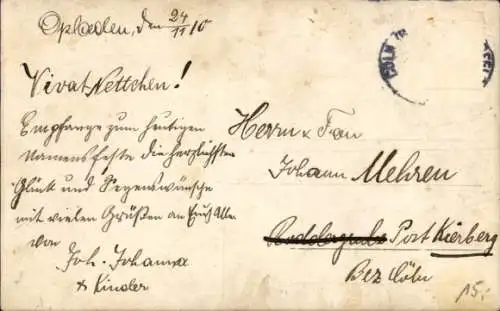 Opladen, den 24/11 10
Vivat Nettchen!
Empfange zum heutigen
Namensfeste die herzlichsten
Glück und Segenswünsche
mit vielen Grüßen an Euch Alle
von
Joh. Johanna
& Kinder
CÖLN
Herrn u Frau
Johann Mehren
Post Kierberg
Bez Cöln
15.-